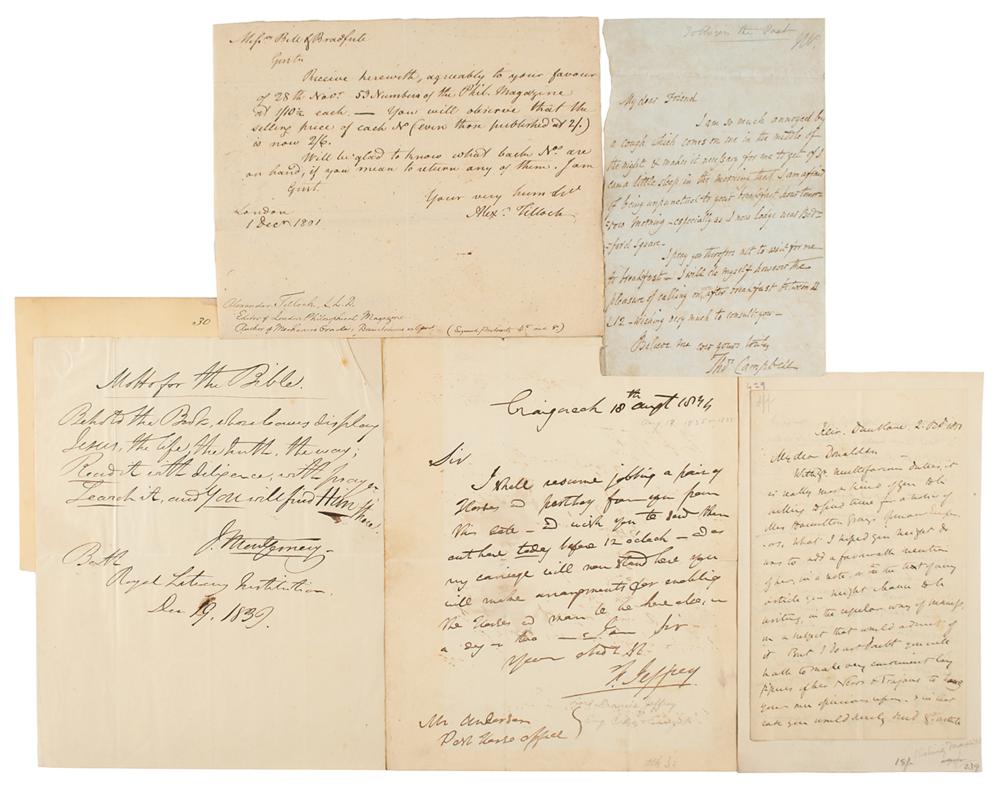 Messrs Bell & Bradfute
Gentn
Receive herewith, agreeably to your favour
of 28th Novr. 53 Numbers of the Phil. Magazine
at 1/10½ each. — You will observe that the
selling price of each No (even those published at 2/.)
is now 2/6.
Will be glad to know what back Nos are
on hand, if you mean to return any of them. I am
Gent.
Your very hum Svt
Alexr. Tilloch
London
1 Decr 1801
Alexander Tilloch, L.L.D.
Editor of London Philosophical Magazine
Author of Mechanics Oracle,
My dear Friend
I am so much annoyed by
a cough which comes on me in the middle of
the night & makes it necessary for me to get if I
can a little sleep in the morning that I am afraid
of being unpunctual to your breakfast hour tomor-
row morning - especially as I now lodge near Bed=
=ford Square.
I pray you therefore not to wait for me
to breakfast - I will do myself however the
pleasure of calling on after breakfast between 11
& 12 - wishing very much to consult you -
Believe me ever yours truly
Thos. Campbell
30
Motto for the Bible.
Behold the Book, whose leaves display
Jesus, the life, the truth, the way;
Read it with diligence, with prayer
Search it, and You will find Him there
J. Montgomery.
Bath
Royal Literary Institution.
Dec 19. 1839.
Craigcrook 18th augt 1834
Sir
I shall resume jobbing a pair of
Horses & postboy from you from
this date - & wish you to send them
out here today before 12 o'clock - & as
my carriage will now stand here you
will make arrangements for enabling
the Horses & man to be here also, in
a day or two - I am Sir
Your obdt St
F. Jeffrey
Mr Anderson
Post Horse office
429
My dear Donaldson
With yr. multifarious duties, it
is really most kind of you to be
willing to find time for a notice of
Mrs Hamilton Gray's
What I hoped you might do
was to add a favourable mention
of her, in a note, or in the text of any
article you might chance to be
writing, in the regular way of
on a subject that would admit of
it. But I do not doubt you will
have to make very
your own opinions upon. & in that
case you would surely
18/-
239